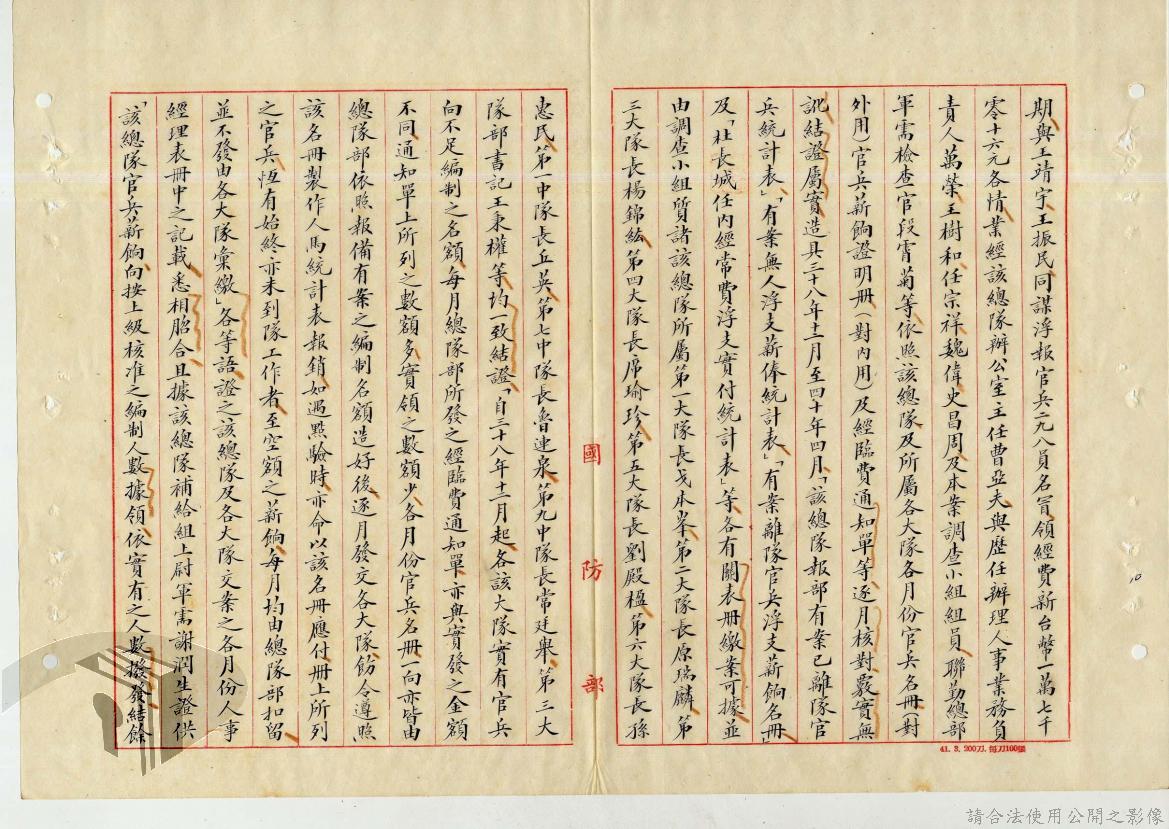 期與王靖宇王振民同謀浮報官兵二九八員名冒領經費新台幣一萬七千
零十六元各情業經該總隊辦公室主任曹亞夫與歷任辦理人事業務負
責人萬榮王樹和任宗祥魏偉史昌周及本案調查小組組員聯勤總部
軍需檢查官段霄菊等依照該總隊及所屬各大隊各月份官兵名冊(對
外用)官兵薪餉證明冊(對內用)及經臨費通知單等逐月核對覈實無
訛結證屬實造具三十八年十二月至四十年四月「該總隊報部有案已離隊官
兵統計表」「有案無人浮支薪俸統計表」「有案離隊官兵浮支薪餉名冊」
及「杜長城任內經常費浮支實付統計表」等各有關表冊繳案可據並
由調查小組質諸該總隊所屬第一大隊長戈本峯第二大隊長原瑞麟第
三大隊長楊錦紘第四大隊長席瑜珍第五大隊長劉殿楹第六大隊長孫
國防部
惠民第一中隊長丘英第七中隊長魯連泉第九中隊長常廷舉第三大
隊部書記王秉權等均一致結證「自三十八年十二月起各該大隊實有官兵
向不足編制之名額每月總隊部所發之經臨費通知單亦與實發之金額
不同通知單上所列之數額多實領之數額少各月份官兵名冊一向亦皆由
總隊部依照報備有案之編制名額造好後逐月發交各大隊飭令遵照
該名冊製作人馬統計表報銷如遇點驗時亦命以該名冊應付冊上所列
之官兵恆有始終亦未到隊工作者至空額之薪餉每月均由總隊部扣留
並不發由各大隊彙繳」各等語證之該總隊及各大隊交案之各月份人事
經理表冊中之記載悉相脗合且據該總隊補給組上尉軍需謝潤生證供
「該總隊官兵薪餉向按上級核准之編制人數據領依實有之人數撥發結餘
41. 3. 200刀. 每刀100張
10
請合法使用公開之影像